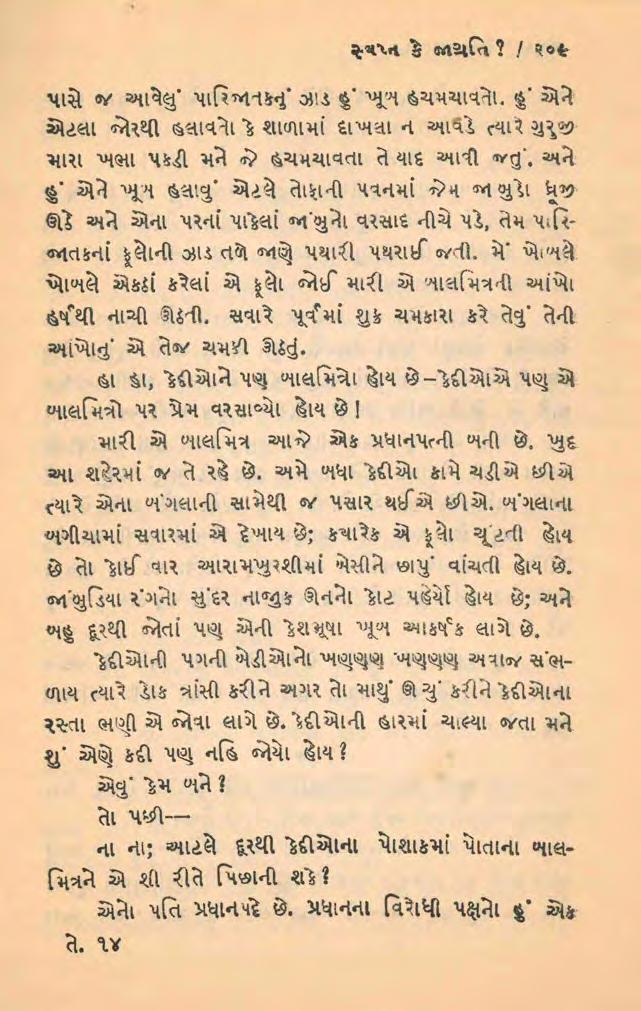 સ્વપ્ન કે જાગ્રતિ? / ૨૦૯
પાસે જ આવેલું પારિજાતકનું ઝાડ હું ખૂબ હચમચાવતો. હું એને
એટલા જોરથી હલાવતો કે શાળામાં દાખલા ન આવડે ત્યારે ગુરુજી
મારા ખભા પકડી મને જે હચમચાવતા તે યાદ આવી જતું. અને
હું એને ખૂબ હલાવું એટલે તોફાની પવનમાં જેમ જાંબુડો ધ્રૂજી
ઊઠે અને એના પરનાં પાકેલાં જાંબુનો વરસાદ નીચે પડે, તેમ પારિ-
જાતકનાં ફૂલોની ઝાડ તળે જાણે પથારી પથરાઈ જતી. મેં ખોબલે
ખોબલે એકઠાં કરેલાં એ ફૂલો જોઈ મારી એ બાલમિત્રની આંખો
હર્ષથી નાચી ઊઠતી. સવારે પૂર્વમાં શુક્ર ચમકારા કરે તેવું તેની
આંખોનું એ તેજ ચમકી ઊઠતું.
હા હા, કેદીઓને પણ બાલમિત્રો હોય છે–કેદીઓએ પણ એ
બાલમિત્રો પર પ્રેમ વરસાવ્યો હોય છે!
મારી એ બાલમિત્ર આજે એક પ્રધાનપત્ની બની છે. ખુદ
આ શહેરમાં જ તે રહે છે. અમે બધા કેદીઓ કામે ચડીએ છીએ
ત્યારે એના બંગલાની સામેથી જ પસાર થઈએ છીએ. બંગલાના
બગીચામાં સવારમાં એ દેખાય છે; કયારેક એ ફૂલો ચૂંટતી હોય
છે તો કોઈ વાર આરામખુરશીમાં બેસીને છાપું વાંચતી હોય છે.
જાંબુડિયા રંગનો સુંદર નાજુક ઊનનો કોટ પહેર્યો હોય છે; અને
બહુ દૂરથી જોતાં પણ એની કેશભૂષા ખૂબ આકર્ષક લાગે છે.
કેદીઓની પગની બેડીઓનો ખણણણ ખણણણ અવાજ સંભ-
ળાય ત્યારે ડોક ત્રાંસી કરીને અગર તો માથું ઊંચું કરીને કેદીઓના
રસ્તા ભણી એ જોવા લાગે છે. કેદીઓની હારમાં ચાલ્યા જતા મને
શું એણે કદી પણ નહિ જોયો હોય?
એવું કેમ બને?
તો પછી—
ના ના; આટલે દૂરથી કેદીઓના પોશાકમાં પોતાના બાલ-
મિત્રને એ શી રીતે પિછાની શકે?
એનો પતિ પ્રધાનપદે છે. પ્રધાનના વિરોધી પક્ષનો હું એક
તે. ૧૪